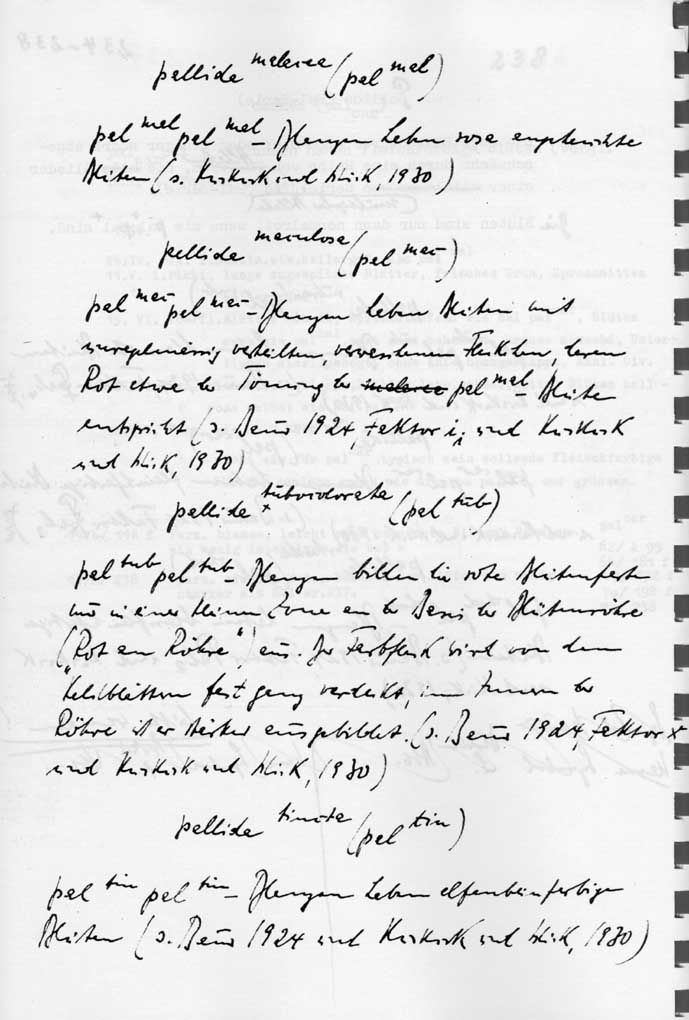 pallida malacea (pal mal)
pal mal pal mal - Pflanzen haben rosa angehauchte
Blüten (s. Kuckuck und Schick, 1930)
pallida maculosa (pal mac)
pal mac pal mac - Pflanzen haben Blüten mit
unregelmässig verteilten verwaschenen Fleckchen, deren
Rot etwa der Tönung der pal mal - Blüte
entspricht (s. Baur 1924, Faktor i, und Kuckuck
und Schick, 1930)
pallida tubocolorata (pal tub)
pal tub pal tub - Pflanzen bilden die rote Blütenfarbe
nur in einer kleinen Zone an der Basis der Blütenröhre
("Rot an Röhre") aus. Der Farbfleck wird von den
Kelchblättern fast ganz verdeckt, im Innern der
Röhre ist er stärker ausgebildet. (s. Baur 1924, Faktor x
und Kuckuck und Schick, 1930)
pallida tincta (pal tin)
pal tin pal tin - Pflanzen haben elfenbeinfarbige
Blüten (s. Baur 1924 und Kuckuck und Schick, 1930)